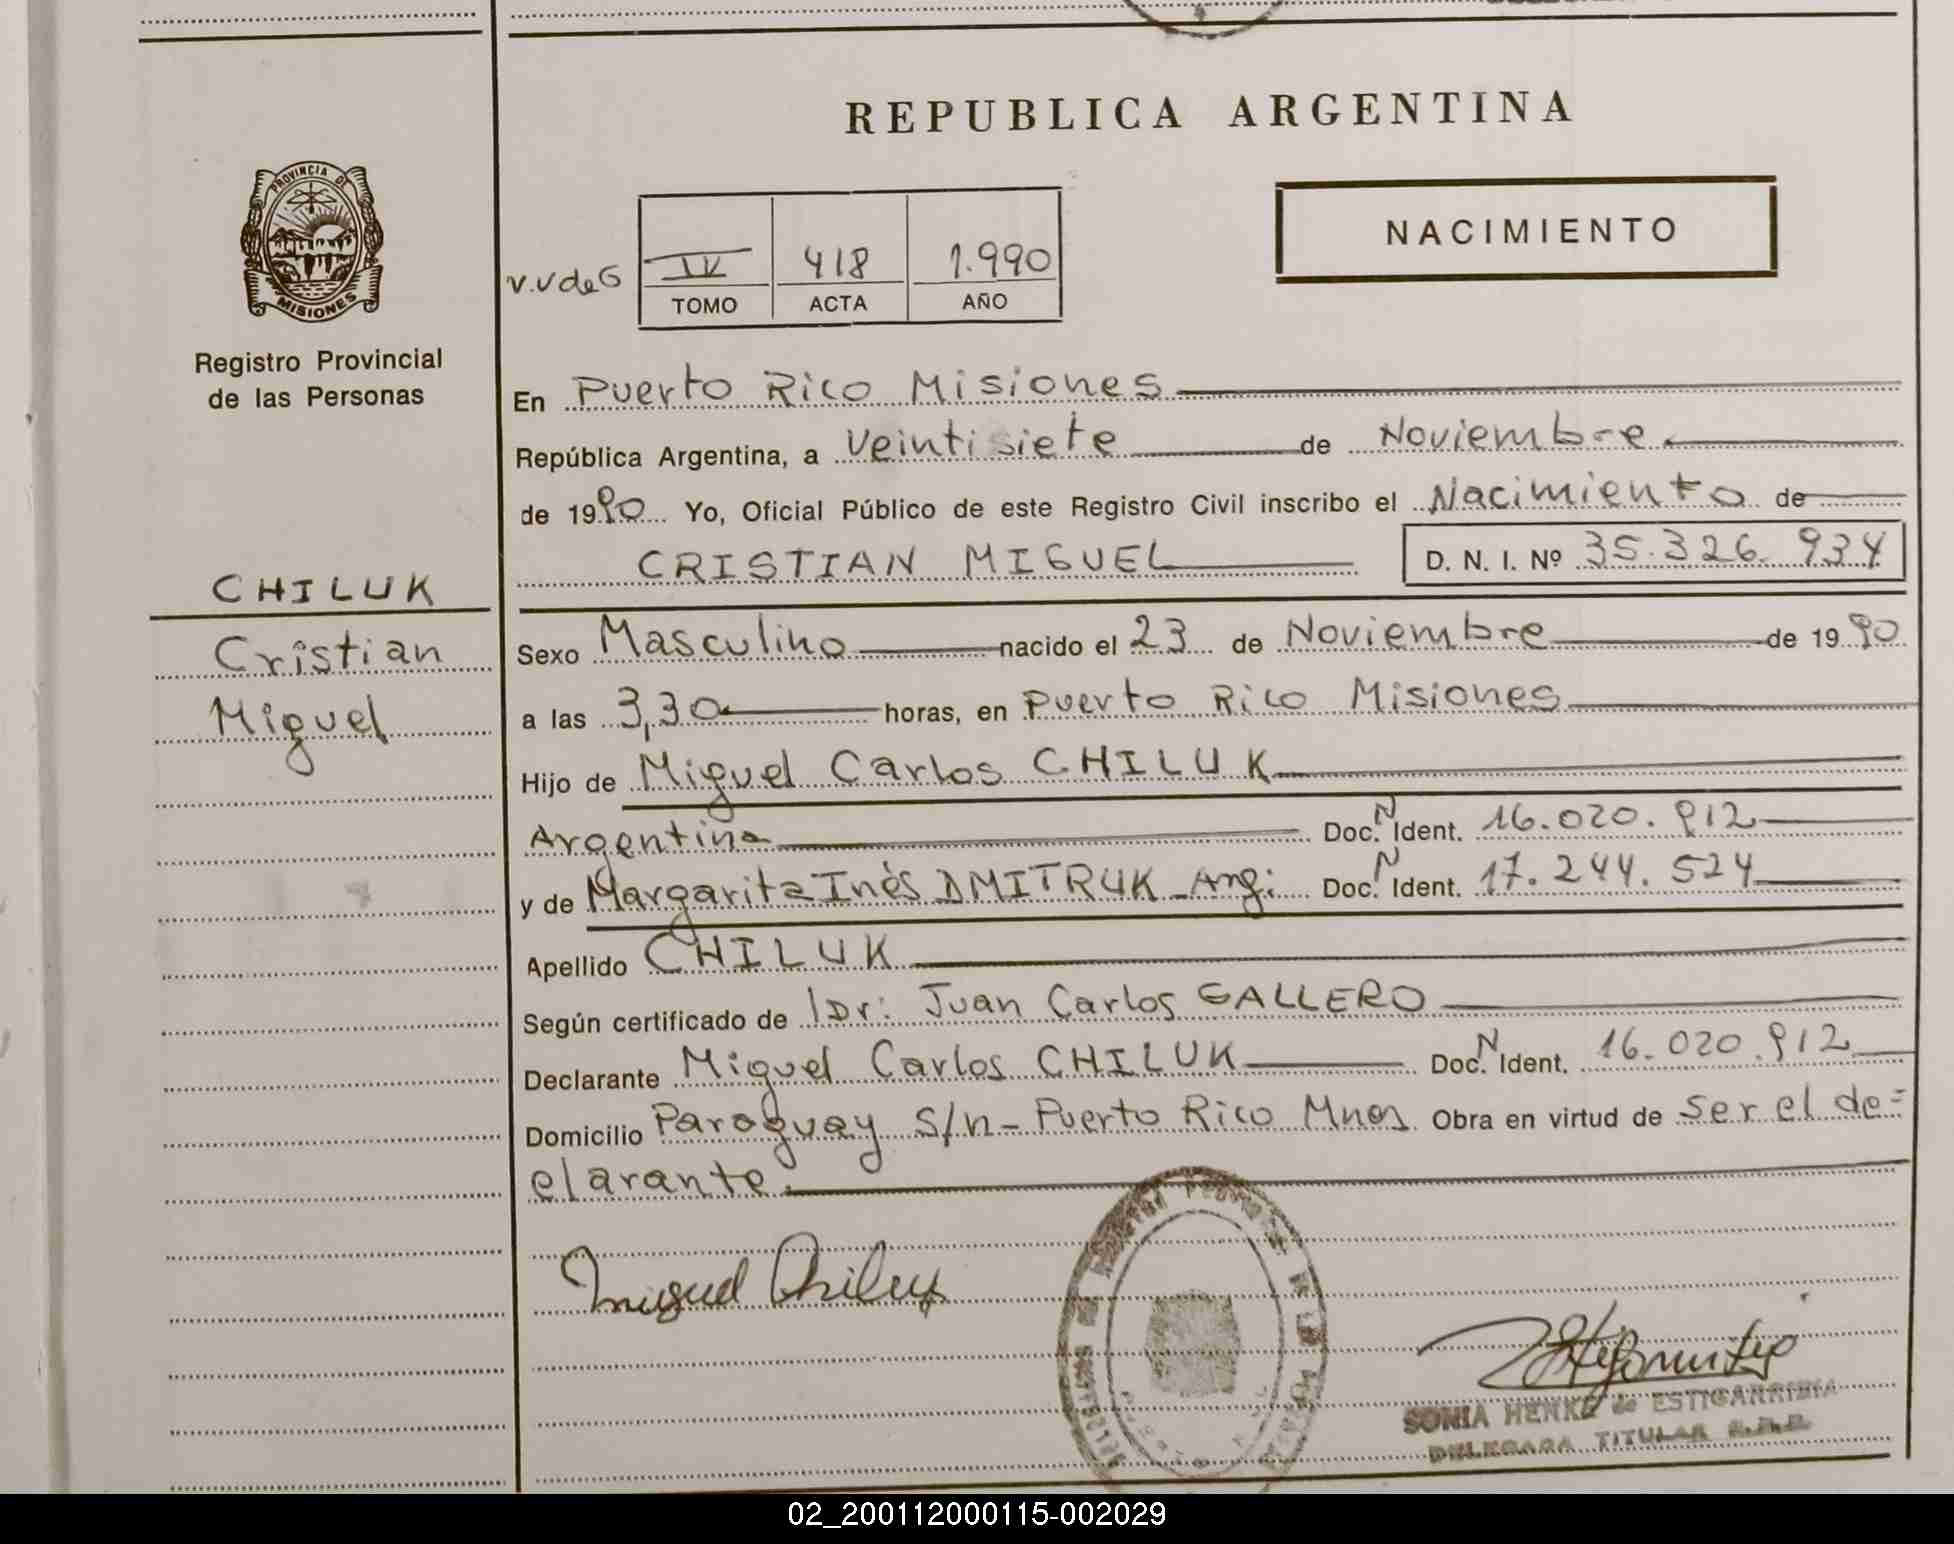 REPUBLICA ARGENTINA
PROVINCIA DE
MISIONES
Registro Provincial
de las Personas
NACIMIENTO
v.v de G
IV 418 1.990
TOMO ACTA AÑO
En Puerto Rico Misiones
República Argentina, a Veintisiete de Noviembre
de 1990 Yo, Oficial Público de este Registro Civil inscribo el Nacimiento de
CRISTIAN MIGUEL D. N. I. Nº 35.326.934
CHILUK
Cristian
Miguel
Sexo Masculino nacido el 23 de Noviembre de 1990
a las 3,30 horas, en Puerto Rico Misiones
Hijo de Miguel Carlos CHILUK
Argentina Doc. N Ident. 16.020.912
y de Margarita Inés DMITRUK - Arg: Doc. N Ident. 17.244.524
Apellido CHILUK
Según certificado de Dr: Juan Carlos GALLERO
Declarante Miguel Carlos CHILUK Doc. N Ident. 16.020.912
Domicilio Paraguay s/n - Puerto Rico Mnes Obra en virtud de ser el de=
clarante.
Miguel Chiluk
SONIA HENKE de ESTIGARRIBIA
DELEGADA TITULAR R.P.P.
02_200112000115-002029